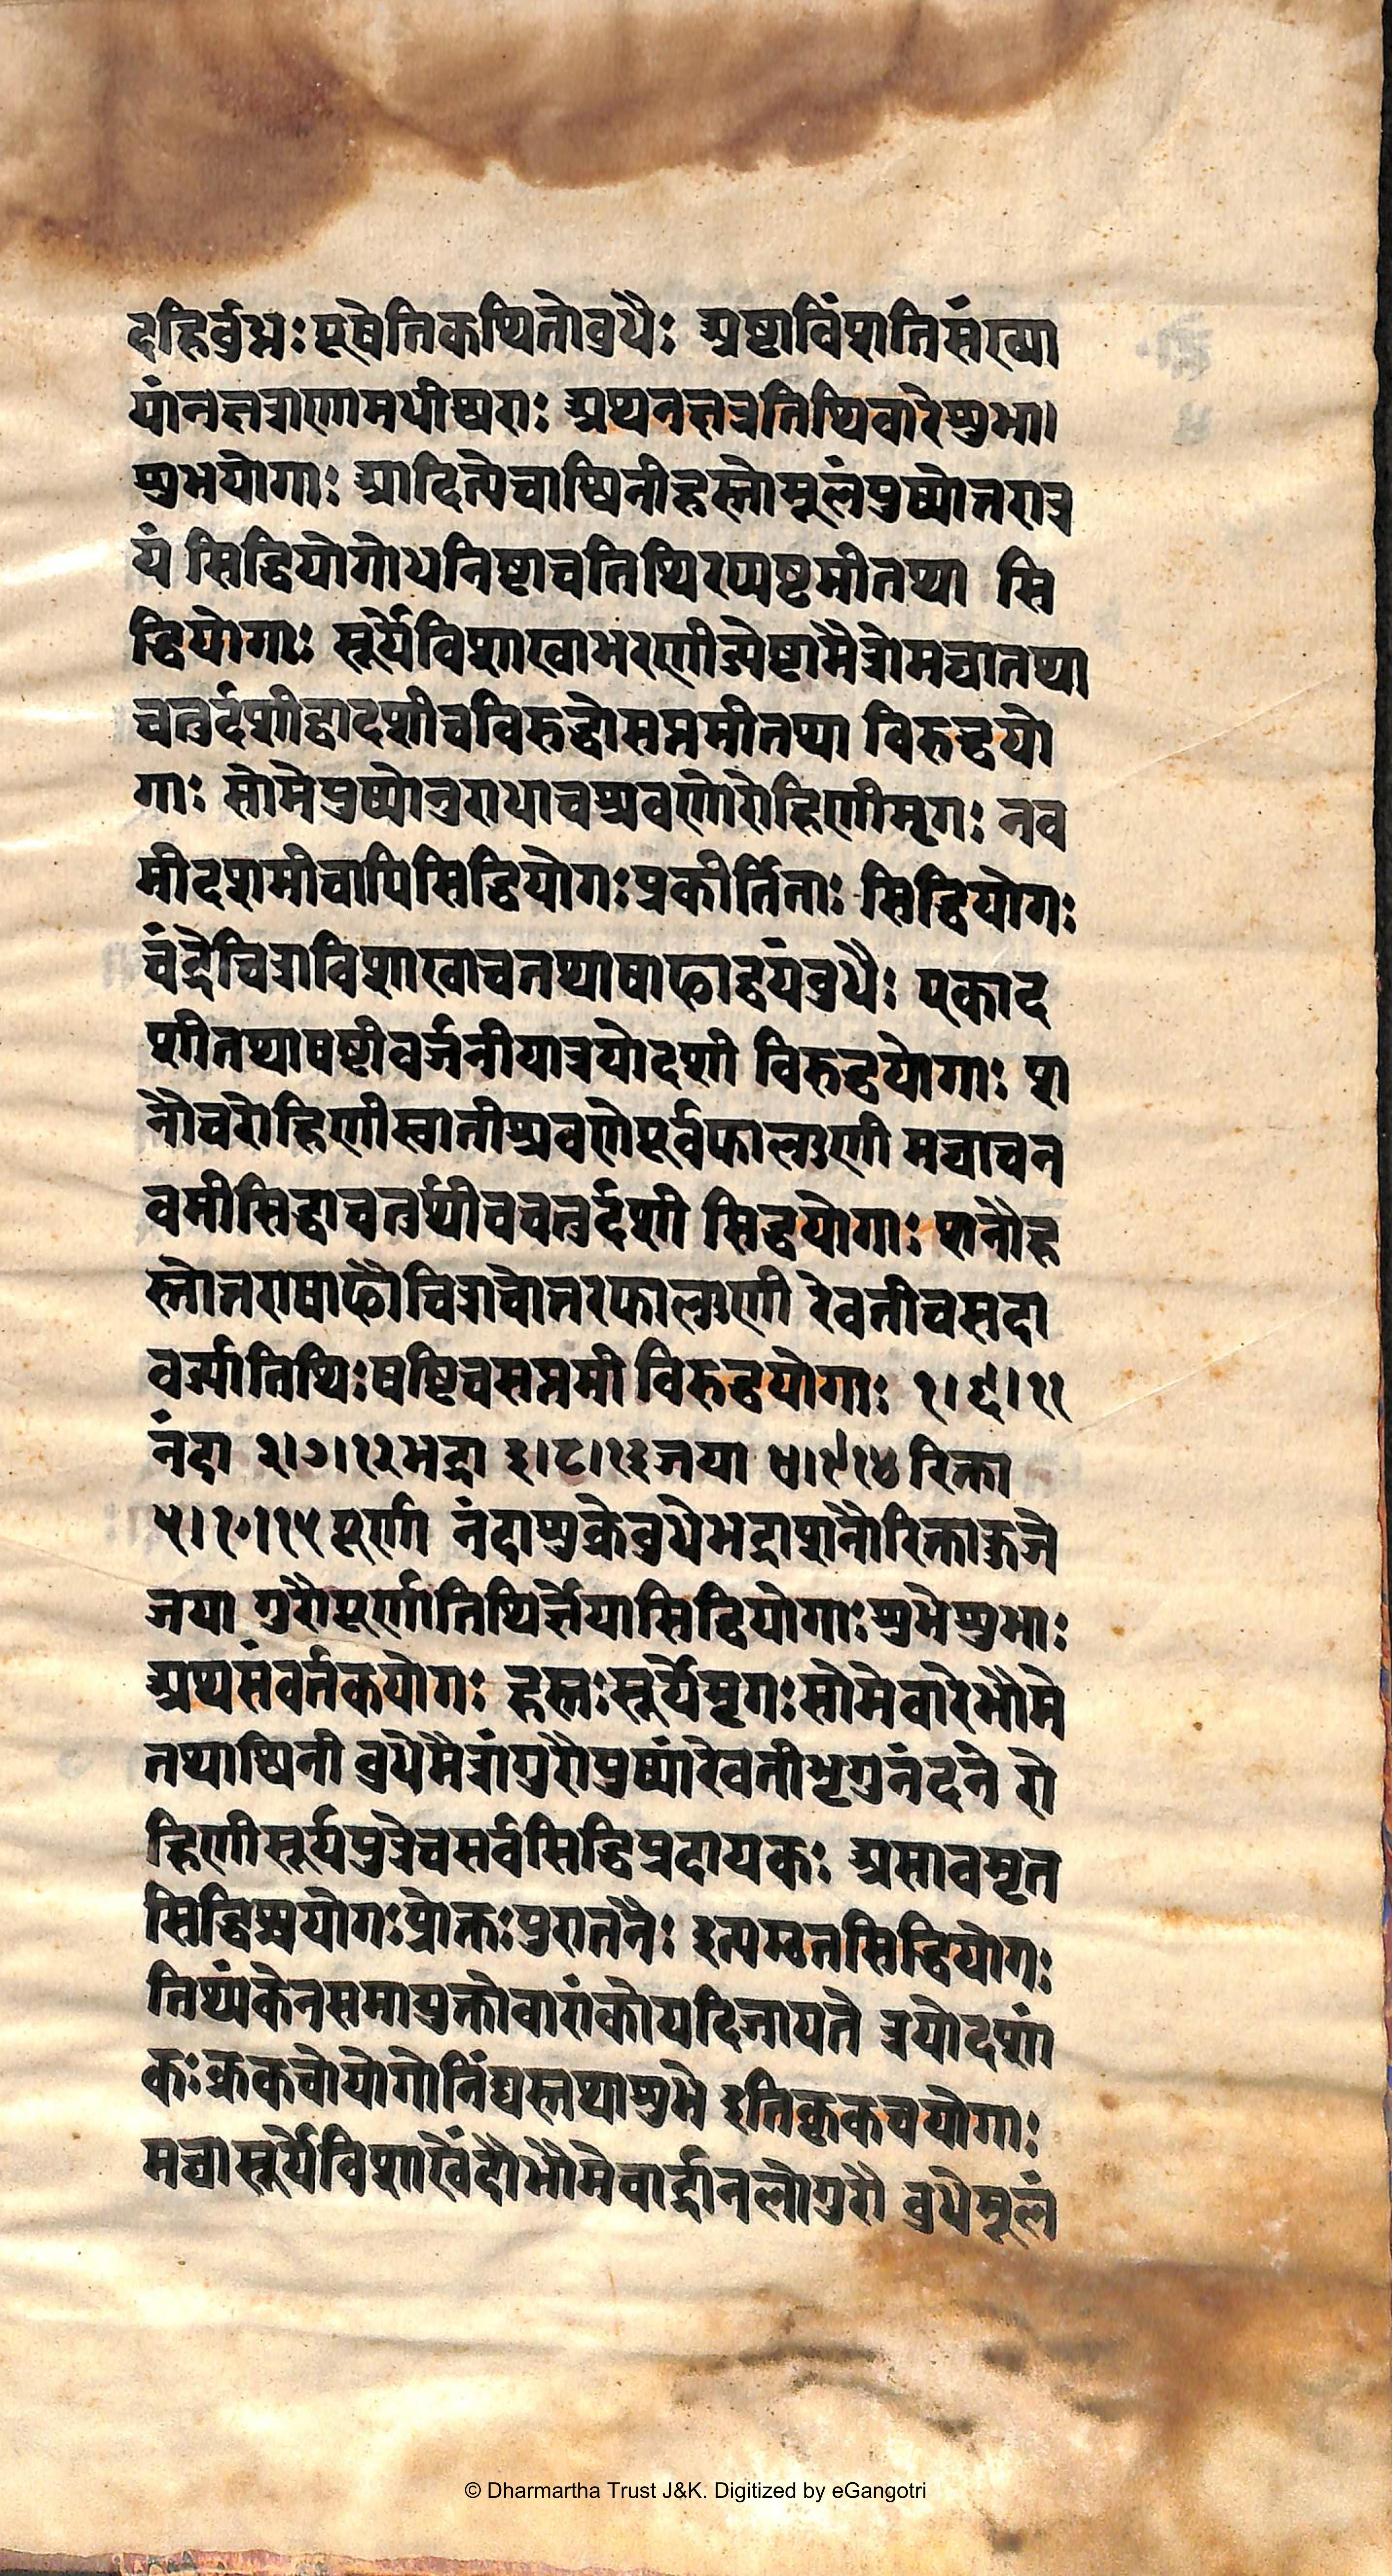 दहिर्बुध्नः पूषेतिकथितोबुधैः अष्टाविंशतिसंख्या
यांनक्षत्राणामधीश्वराः अथनक्षत्रतिथिवारेशुभा।
शुभयोगाः आदित्येचाश्विनीहस्तोमूलंपुष्योतरात्र
यं सिद्धियोगोधनिष्टाचतिथिरप्यष्टमीतथा सि
द्धियोगाः सूर्येविशाखाभरणीज्येष्टामैत्रोमघातथा
चतुर्दशीद्वादशीचविरुद्धोसप्तमीतथा विरुद्धयो
गाः सोमेपुष्योनुराधाचश्रवणोरोहिणीमृगः नव
मीदशमीचापिसिद्धियोगःप्रकीर्तिताः सिद्धियोगः
चंद्रेचित्राविशाखाचतथाषाढाद्वयंबुधैः एकाद
शीतथाषष्टीवर्जनीयात्रयोदशी विरुद्धयोगाः श
नौचरोहिणीस्वातीश्रवणेपूर्वफाल्गुणी मघाचन
वमीसिद्धाचतुर्थीचचतुर्दशी सिद्धयोगाः शनौह
स्तोतराषाढौचित्राचोतरफाल्गुणी रेवतीचसदा
वर्ज्यातिथिःषष्टिचसप्तमी विरुद्धयोगाः १।६।११
नंदा २।७।१२भद्रा ३।८।१३जया ४।९।१४ रिक्ता
५।१०।१५पूर्णा नंदाशुक्रेबुधेभद्राशनौरिक्ताकुजे
जया गुरौपूर्णातिथिर्ज्ञेयासिद्धियोगाःशुभेशुभाः
अथसंवर्तकयोगः हस्तःसूर्येमृगःसोमेवारेभौमे
तथाश्विनी बुधेमैत्रांगुरौपुष्यांरेवतीभृगुनंदने रो
हिणीसूर्यपुत्रेचसर्वसिद्धिप्रदायकः असावमृत
सिद्धिश्चयोगःप्रोक्तःपुरातनैः इत्यमृतसिद्धियोगः
तिथ्यंकेनसमायुक्तोवारांकोयदिजायते त्रयोदशां
कःक्रकचोयोगोनिंद्यस्तथाशुभे इतिकृकचयोगाः
मघासूर्येविशाखेंदौभौमेचार्द्रानलोगुरौ बुधेमूलं
© Dharmartha Trust J&K. Digitized by eGangotri